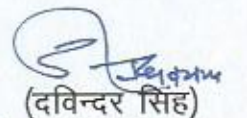 (दविन्दर सिंह)